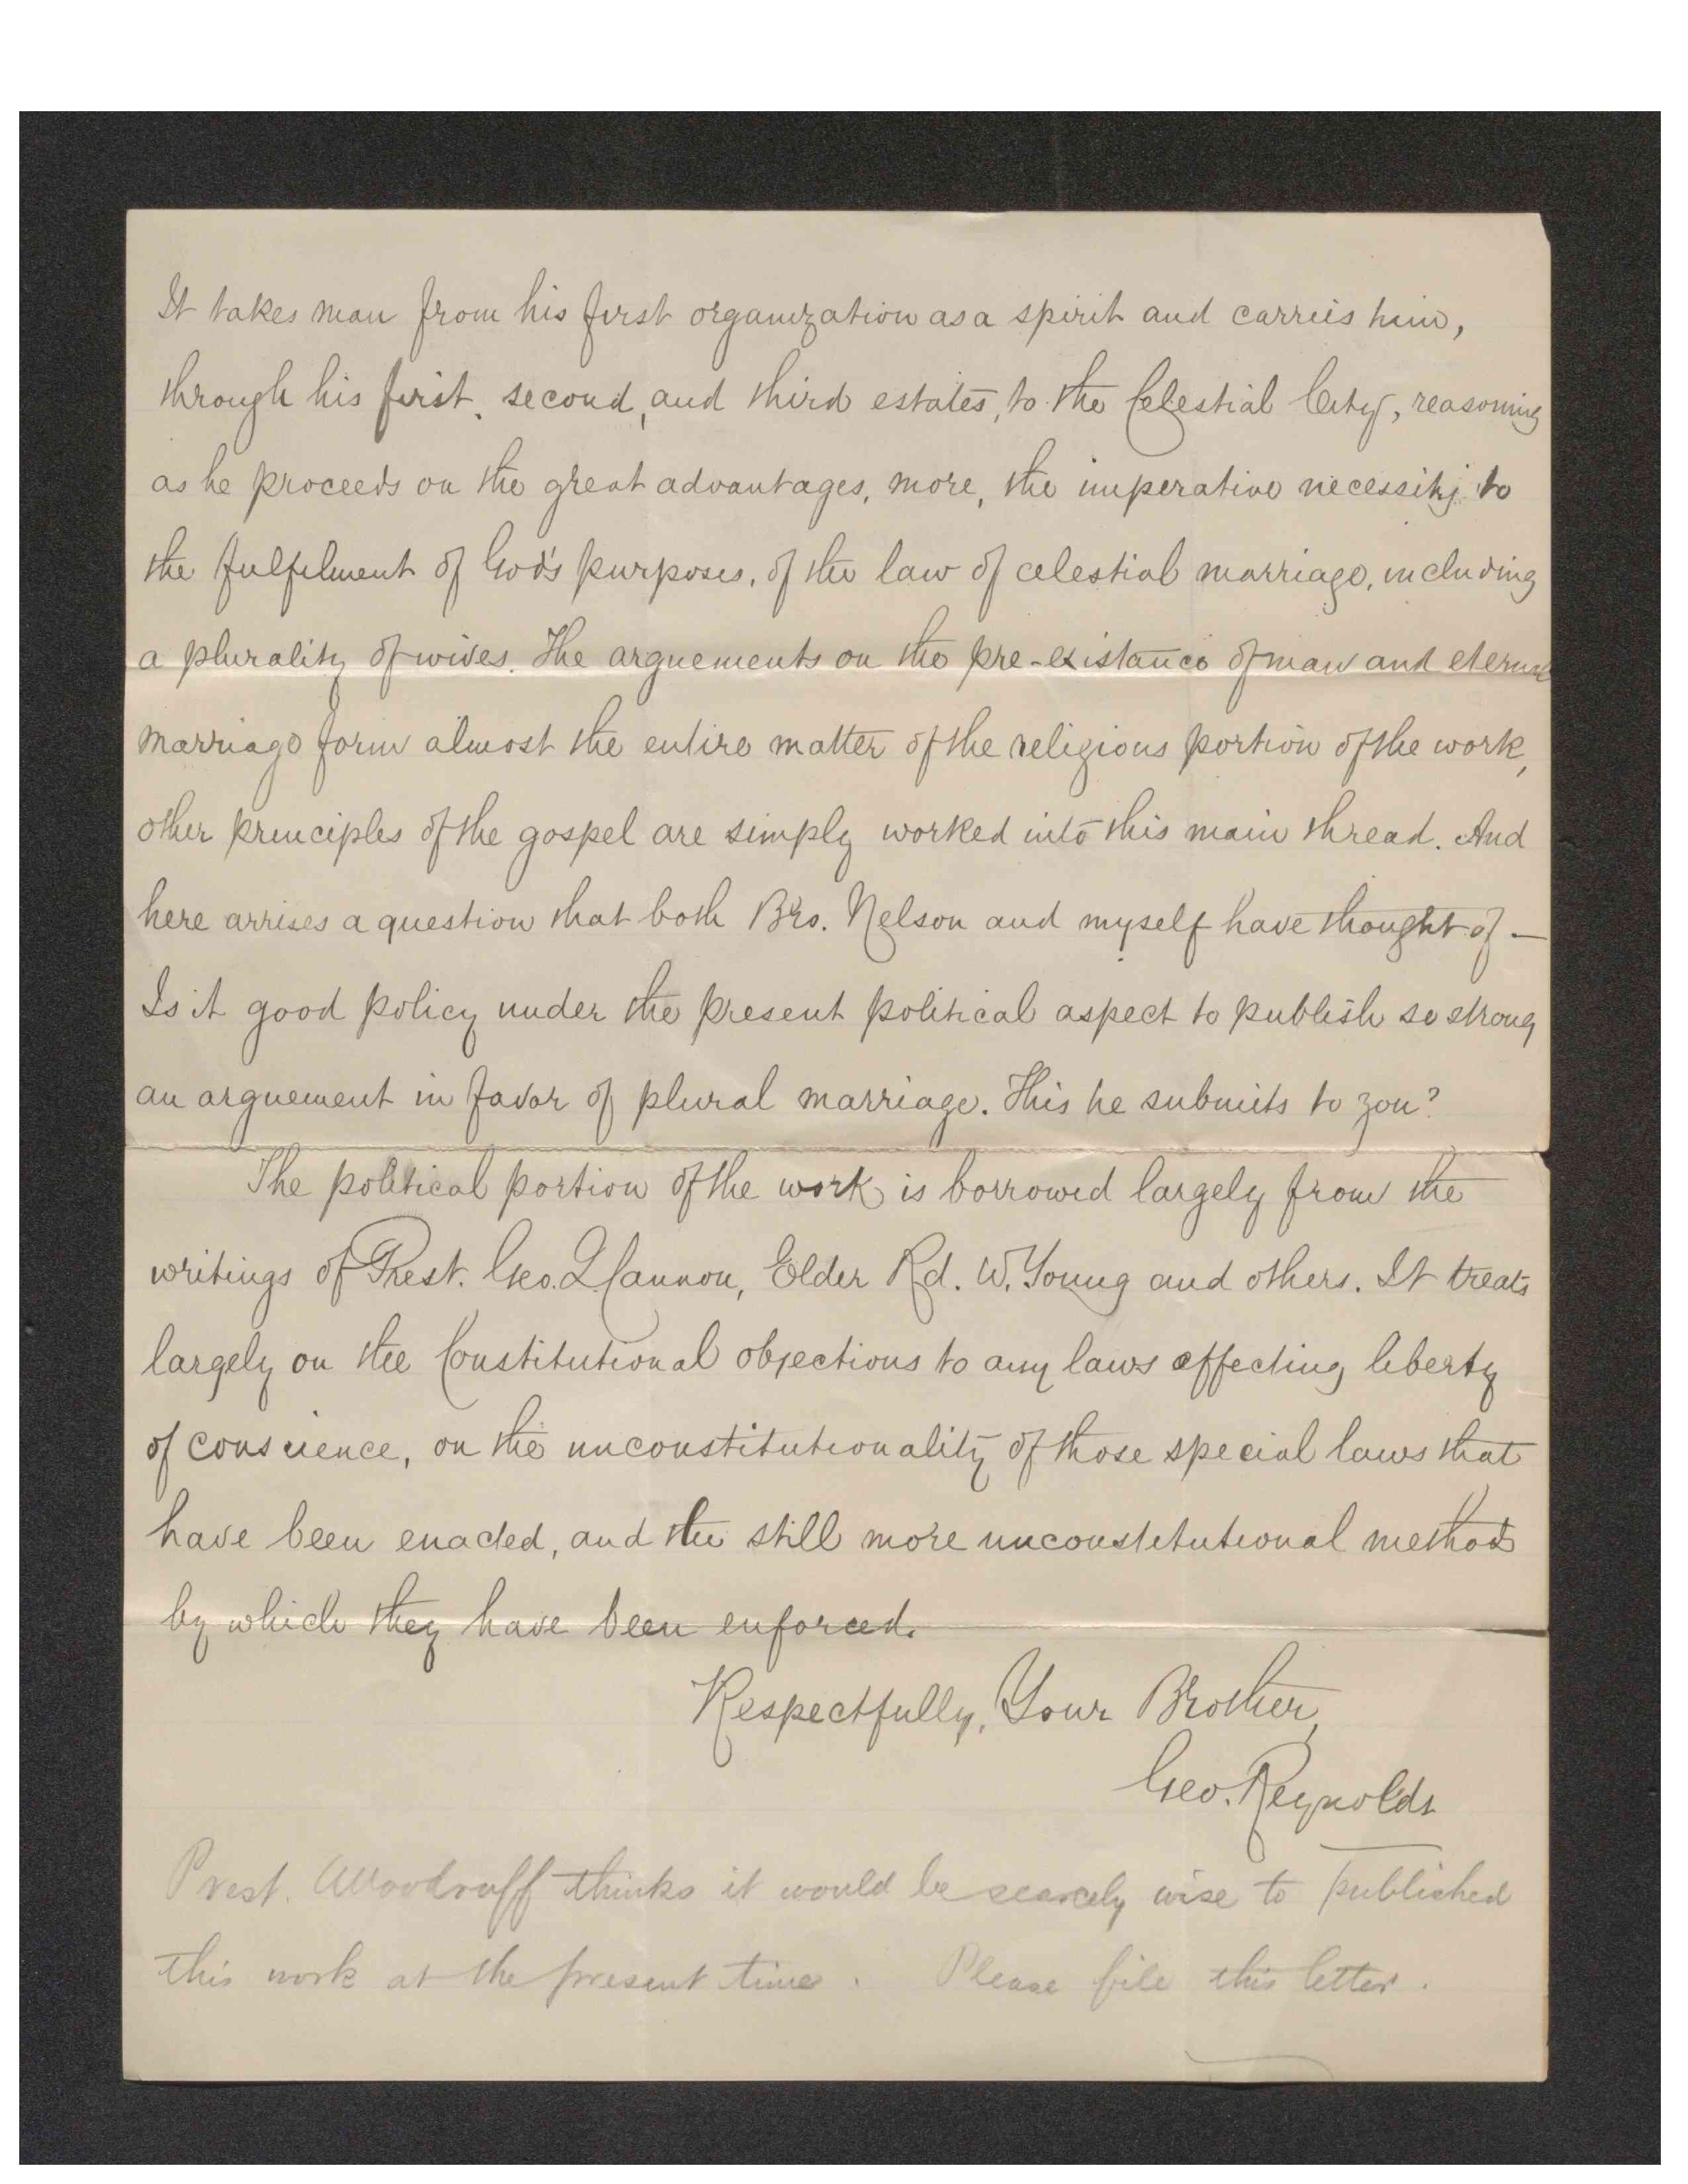 It takes man from his first organization as a spirit and carries him,
through his first, second, and third estates, to the Celestial City, reasoning
as he proceeds on the great advantages, more, the imperative necessity to
the fulfilment of God's purposes, of the law of celestial marriage, including
a plurality of wives. The arguements on the pre-existance of man and eternal
marriage form almost the entire matter of the religious portion of the work,
other principles of the gospel are simply worked into this main thread. And
here arrises a question that both Bro. Nelson and myself have thought of —
Is it good policy under the present political aspect to publish so strong
an arguement in favor of plural marriage. This he submits to you?
The political portion of the work is borrowed largely from the
writings of Prest. Geo. Q. Cannon, Elder Rd. W. Young and others. It treats
largely on the Constitutional objections to any laws affecting liberty
of conscience, on the unconstitutionality of those special laws that
have been enacted, and the still more unconstitutional methods
by which they have been enforced.
Respectfully, Your Brother,
Geo. Reynolds
Prest. Woodruff thinks it would be scarcely wise to published
this work at the present time. Please file this letter.